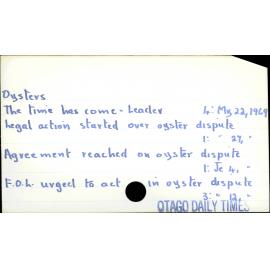 Oysters
The time has come - Leader 4: My 22, 1969
Legal action started over oyster dispute
1: " 29, "
Agreement reached on oyster dispute
1: Je 4, "
F.O.L. urged to act in oyster dispute
3: " 12, "
OTAGO DAILY TIMES